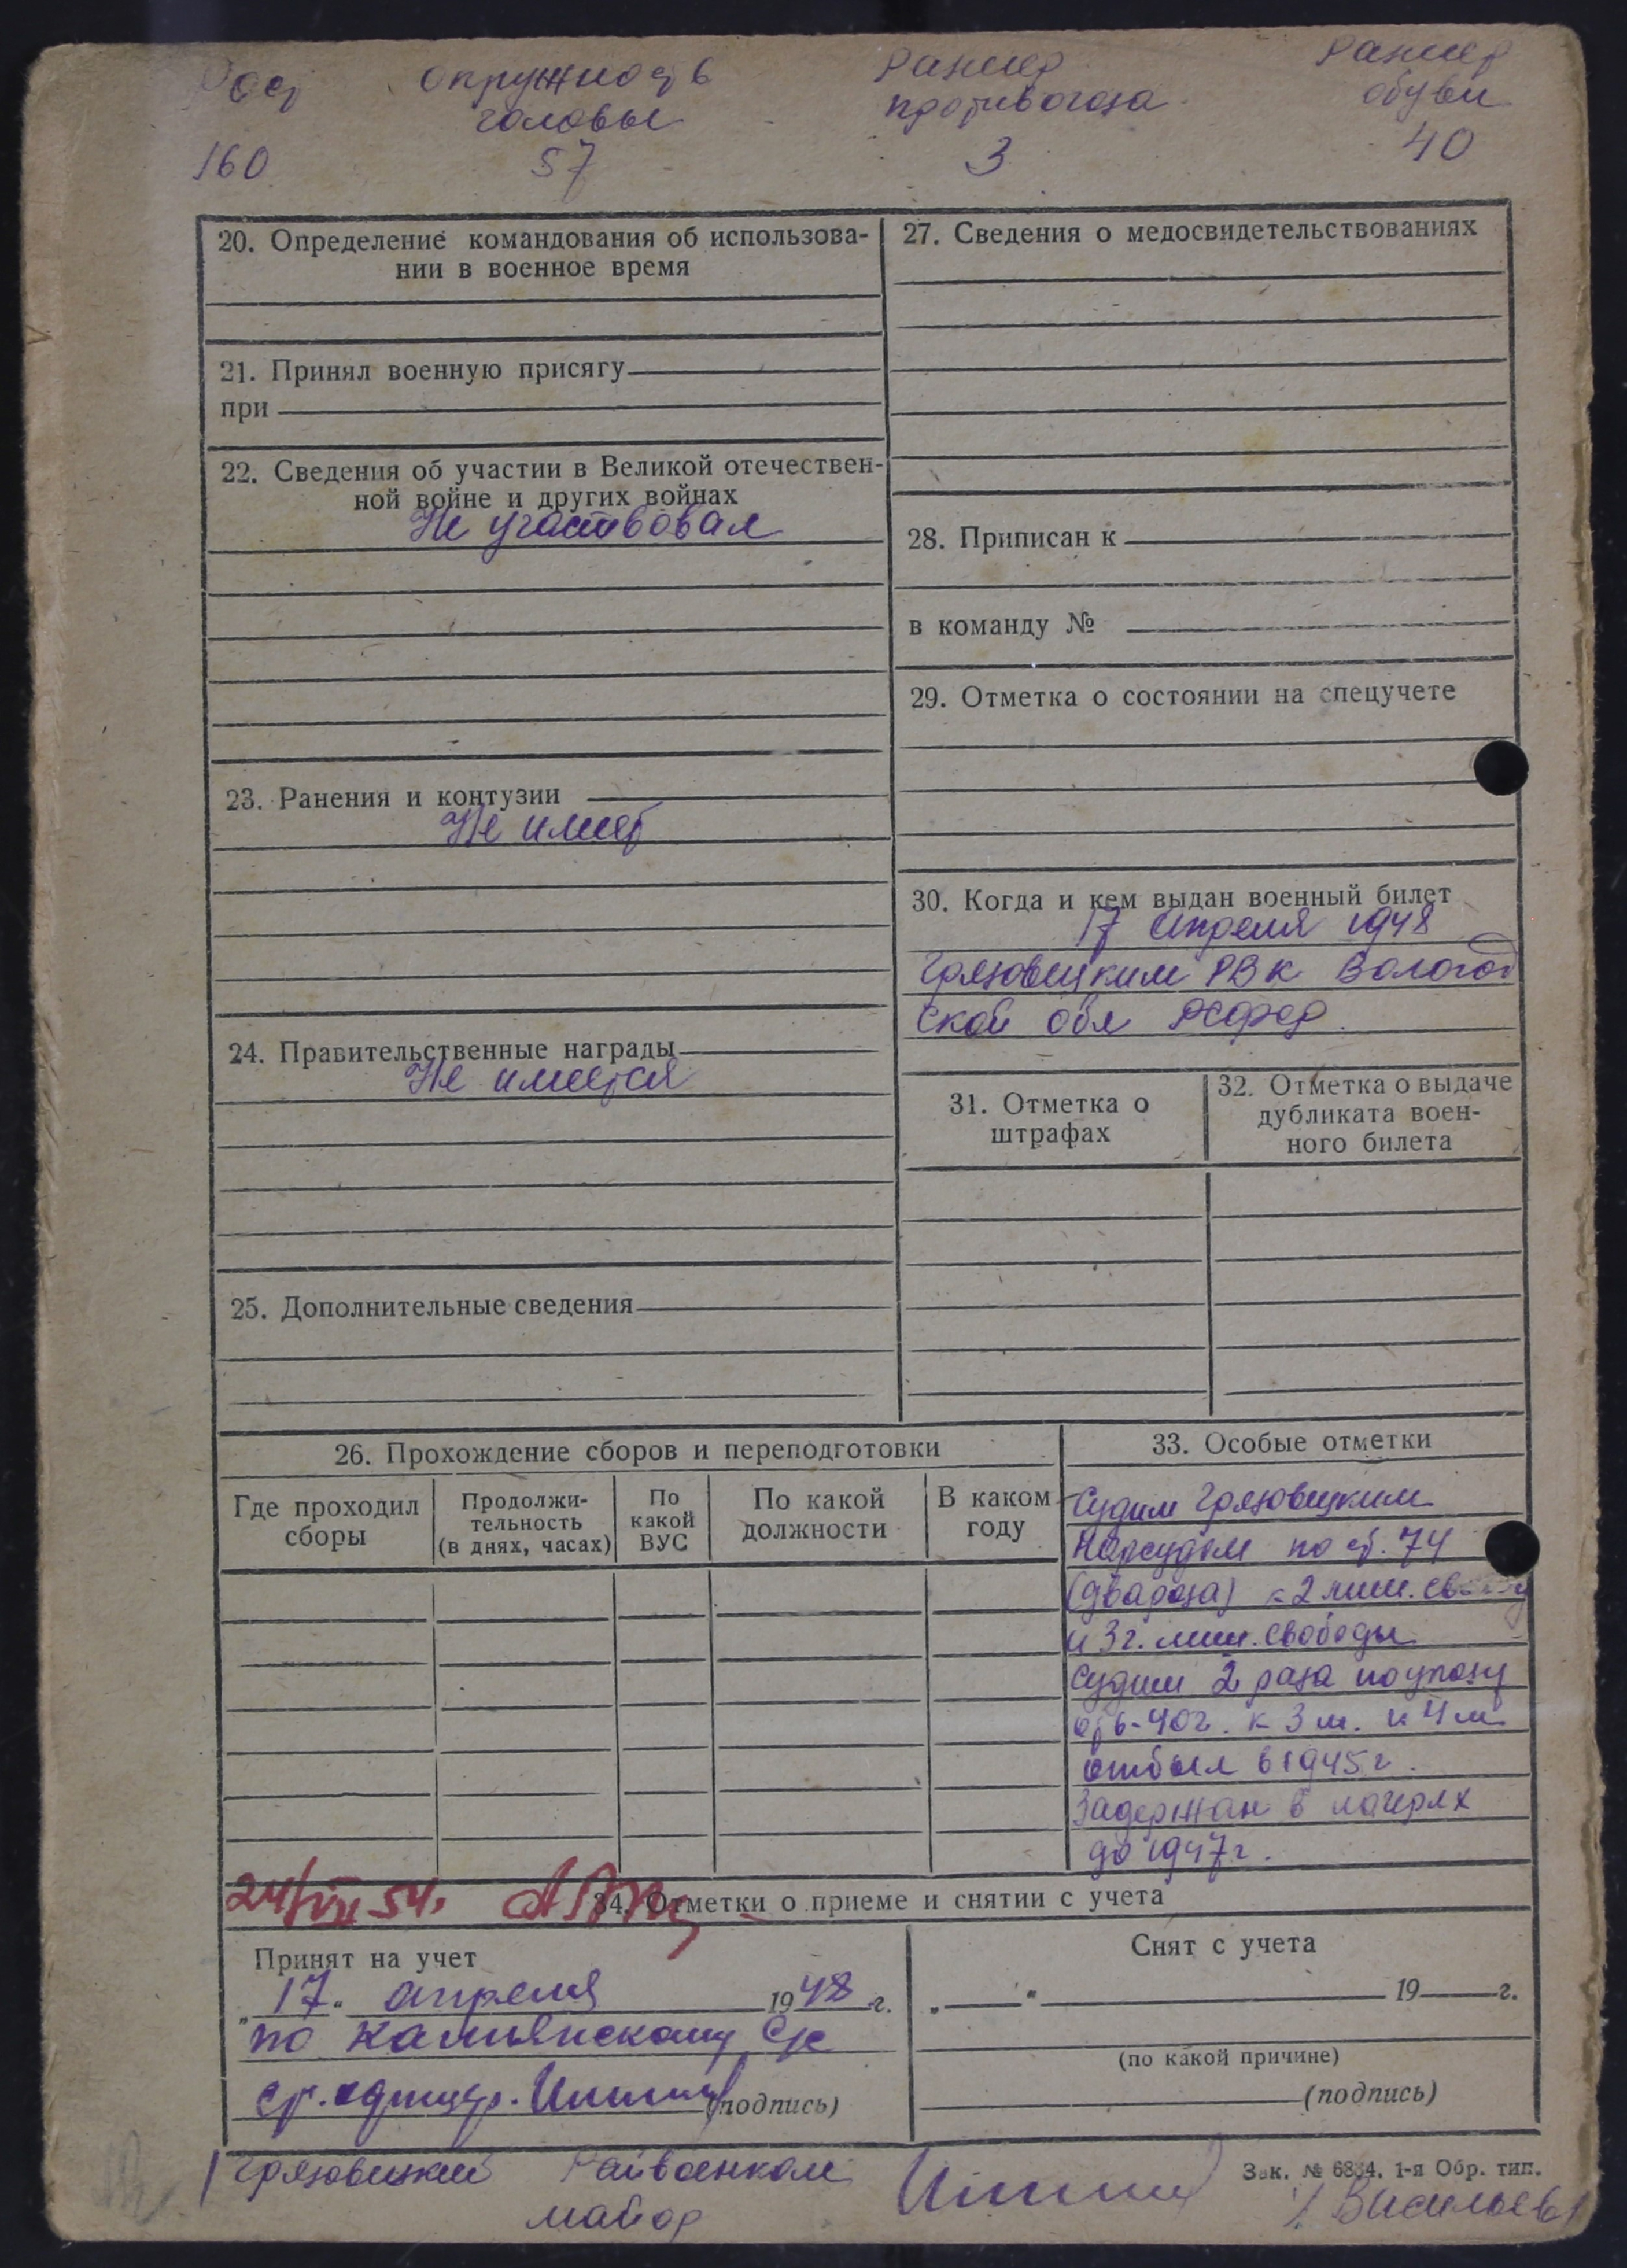 Рост окружность размер размер
головы противогаза обуви
160 57 3 40
20. Определение командования об использова-
нии в военное время
21. Принял военную присягу
при
22. Сведения об участии в Великой отечествен-
ной войне и других войнах
Не участвовал
23. Ранения и контузии
Не имеет
24. Правительственные награды
Не имеется
25. Дополнительные сведения
27. Сведения о медосвидетельствованиях
28. Приписан к
в команду №
29. Отметка о состоянии на спецучете
30. Когда и кем выдан военный билет
17 апреля 1948
Грязовецким РВК Вологод
ской обл РСФСР
31. Отметка о
штрафах
32. Отметка о выдаче
дубликата воен-
ного билета
26. Прохождение сборов и переподготовки
Где проходил
сборы
Продолжи-
тельность
(в днях, часах)
По
какой
ВУС
По какой
должности
В каком
году
33. Особые отметки
Судим Грязовецким
Нарсудом по ст. 74
(два раза) к 2 лиш.
и 3 г. лиш. свободы
Судим 2 раза по указу
от 6-40г. к 3 м. и 4 м
отбыл в 1945 г.
Задержан в лагерях
до 1947 г.
24/VII 54.
34. Отметки о приеме и снятии с учета
Принят на учет
„17" апреля 1948 г.
по Камьянскому с/с
(подпись)
Снят с учета
„ " 19 г.
(по какой причине)
(подпись)
Грязовецкий Райвоенком
майор
Зак. № 6834. 1-я Обр. тип.
/Васильев/